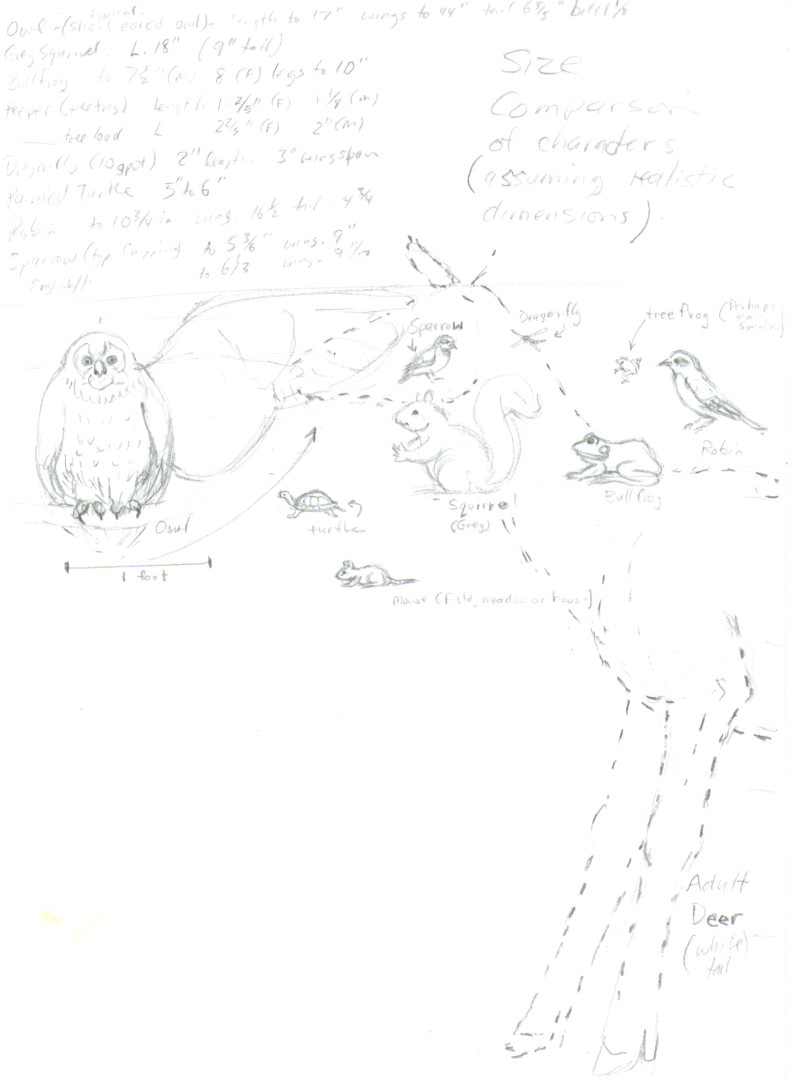 typical
Owl - (short eared owl) - length to 17" wings to 44" tail 6 3/5" bill 1 1/8
Grey Squirrel: L. 18" (9" tail)
Bullfrog to 7 1/2" (M) 8" (F) legs to 10"
Peeper length 1 2/5" (F) 1 1/8 (M)
tree toad L 2 2/5" (F) 2" (M)
Dragonfly (10 spot) 2" length 3" wingspan
Painted Turtle 5" to 6"
Robin to 10 3/4 in wing. 16 1/2 tail - 4 3/4
Sparrow (typ. Chipping to 5 3/8" wing. 9"
English to 6 1/2 wing. 9
Size
Comparison
of characters
(assuming realistic
dimensions).
Dragonfly
tree frog (Perhaps
Sparrow
Robin
Squirrel
(Grey)
Bullfrog
Owl
turtle
1 foot
Mouse (Field, meadow or house)
Adult
Deer
(white
tail